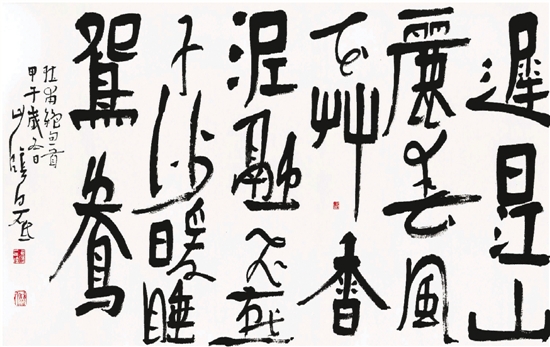 遲日江山
麗春風
花艸香
泥融飛燕
子沙暖睡
鴛鴦
杜甫絕句首
甲午歲冬日